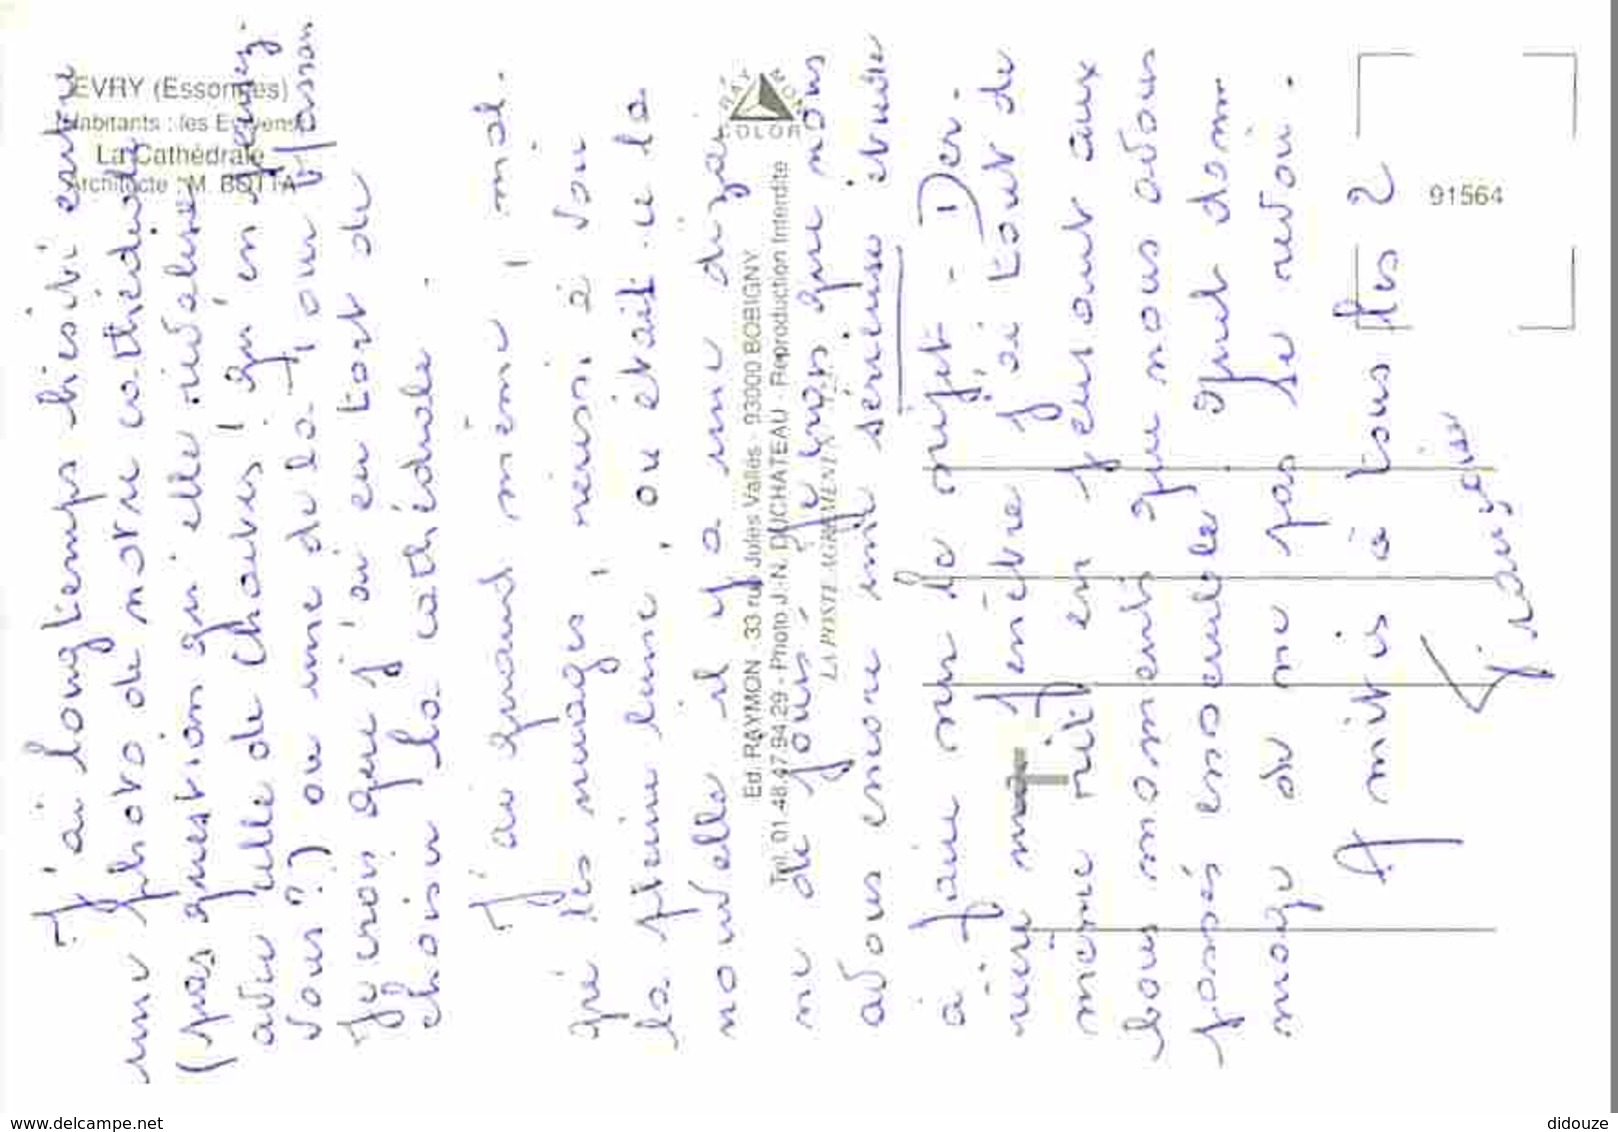 EVRY (Essonnes)
Habitants : les Evryens
La Cathédrale
Architecte : M. BOTTA
RAYMON
COLOR
Ed. RAYMON - 33 rue Jules Vallès - 93000 BOBIGNY
Tél. 01.48.47.94.29 - Photo J.-N. DUCHATEAU - Reproduction Interdite
LA POSTE AGRÉMENT N°
91564
J'ai longtemps hésité entre
une photo de notre cathédrale
(pas question qu'elle rivalise
avec celle de Chartres ! qu'en pensez-
vous ?) ou une de la
Je crois que j'ai eu tort de
choisir la cathédrale.
J'ai quand même, mal-
gré les nuages, réussi à voir
la pleine lune, ou était-ce la
nouvelle il y a une dizai
ne de jours, je crois que nous
avons encore une sérieuse étude
à faire sur le sujet - Der-
rière ma fenêtre j'ai tout de
même rit en pensant aux
bons moments que nous avons
passés ensemble. Quel dom-
mage de ne pas le revoir.
Amitiés à tous les 2
Françoise
www.delcampe.net
didouze